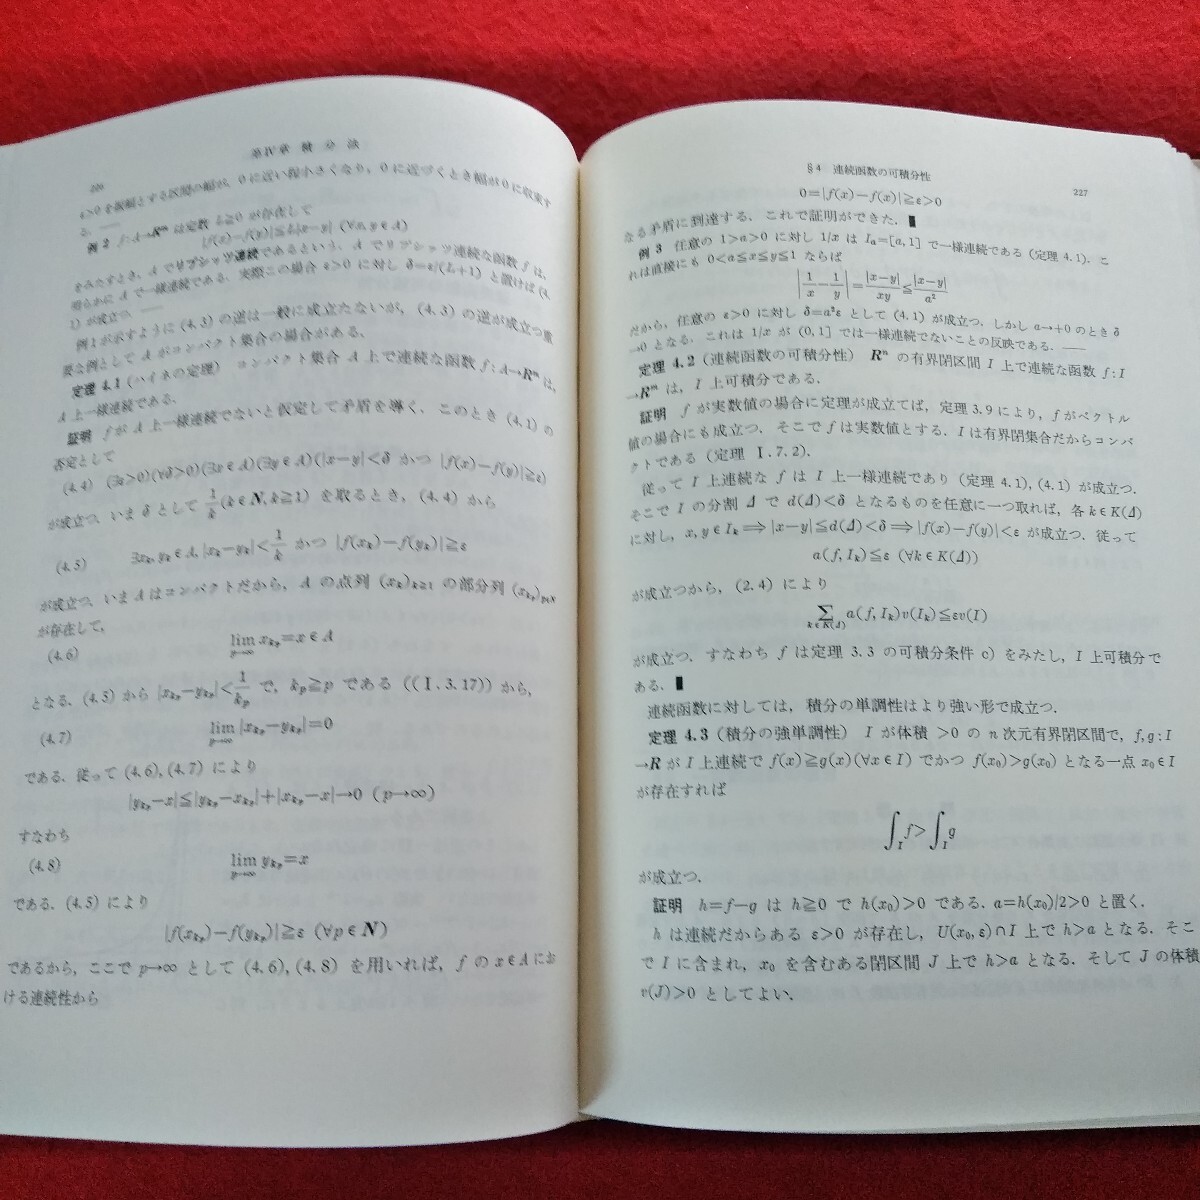 第IV章 積 分 法
ε>0を振幅とする区間の幅が,0に近い程小さくなり,0に近づくとき幅が0に収束す
る.——
例2 f:A→Rᵐ は定数 L≧0 が存在して
|f(x)−f(y)|≦L|x−y| (∀x,y∈A)
をみたすとき,A でリプシッツ連続であるという.A でリプシッツ連続な函数 f は,
明らかに A で一様連続である.実際この場合 ε>0 に対し δ=ε/(L+1) と置けば (4.
1) が成立つ.——
例1が示すように (4.3) の逆は一般に成立たないが,(4.3) の逆が成立つ重
要な例として A がコンパクト集合の場合がある.
定理 4.1 (ハイネの定理) コンパクト集合 A 上で連続な函数 f:A→Rᵐ は,
A 上一様連続である.
証明 f が A 上一様連続でないと仮定して矛盾を導く.このとき (4.1) の
否定として
(4.4) (∃ε>0)(∀δ>0)(∃x∈A)(∃y∈A)(|x−y|<δ かつ |f(x)−f(y)|≧ε)
が成立つ.いま δ として 1/k (k∈N, k≧1) を取るとき,(4.4) から
(4.5) ∃xₖ, yₖ∈A, |xₖ−yₖ|<1/k かつ |f(xₖ)−f(yₖ)|≧ε
が成立つ.いま A はコンパクトだから,A の点列 (xₖ)ₖ≧₁ の部分列 (x_{k_p})_{p∈N}
が存在して,
(4.6) lim_{p→∞} x_{k_p}=x∈A
となる.(4.5) から |x_{k_p}−y_{k_p}|<1/k_p で,k_p≧p である ((I.3.17)) から,
(4.7) lim_{p→∞} |x_{k_p}−y_{k_p}|=0
である.従って (4.6),(4.7) により
|y_{k_p}−x|≦|y_{k_p}−x_{k_p}|+|x_{k_p}−x|→0 (p→∞)
すなわち
(4.8) lim_{p→∞} y_{k_p}=x
である.(4.5) により
|f(x_{k_p})−f(y_{k_p})|≧ε (∀p∈N)
であるから,ここで p→∞ として (4.6),(4.8) を用いれば,f の x∈A にお
ける連続性から
§4 連続函数の可積分性 227
0=|f(x)−f(x)|≧ε>0
なる矛盾に到達する.これで証明ができた.▮
例3 任意の 1>a>0 に対し 1/x は Iₐ=[a,1] で一様連続である (定理 4.1).こ
れは直接にも 0<a≦x≦y≦1 ならば
|1/x−1/y|=|x−y|/xy≦|x−y|/a²
だから,任意の ε>0 に対し δ=a²ε として (4.1) が成立つ.しかし a→+0 のとき δ
→0 となる.これは 1/x が (0,1] では一様連続でないことの反映である.——
定理 4.2 (連続函数の可積分性) Rⁿ の有界閉区間 I 上で連続な函数 f:I
→Rᵐ は,I 上可積分である.
証明 f が実数値の場合に定理が成立てば,定理3.9により,f がベクトル
値の場合にも成立つ.そこで f は実数値とする.I は有界閉集合だからコンパ
クトである (定理 I.7.2).
従って I 上連続な f は I 上一様連続であり (定理 4.1),(4.1) が成立つ.
そこで I の分割 Δ で d(Δ)<δ となるものを任意に一つ取れば,各 k∈K(Δ)
に対し,x,y∈Iₖ⟹|x−y|≦d(Δ)<δ⟹|f(x)−f(y)|<ε が成立つ.従って
a(f,Iₖ)≦ε (∀k∈K(Δ))
が成立つから,(2.4) により
∑_{k∈K(Δ)} a(f,Iₖ)v(Iₖ)≦εv(I)
が成立つ.すなわち f は定理 3.3 の可積分条件 c) をみたし,I 上可積分で
ある.▮
連続函数に対しては,積分の単調性はより強い形で成立つ.
定理 4.3 (積分の強単調性) I が体積 >0 の n 次元有界閉区間で,f,g:I
→R が I 上連続で f(x)≧g(x)(∀x∈I) でかつ f(x₀)>g(x₀) となる一点 x₀∈I
が存在すれば
∫_I f>∫_I g
が成立つ.
証明 h=f−g は h≧0 で h(x₀)>0 である.a=h(x₀)/2>0 と置く.
h は連続だからある ε>0 が存在し,U(x₀,ε)∩I 上で h>a となる.そこ
で I に含まれ,x₀ を含むある閉区間 J 上で h>a となる.そして J の体積
v(J)>0 としてよい.